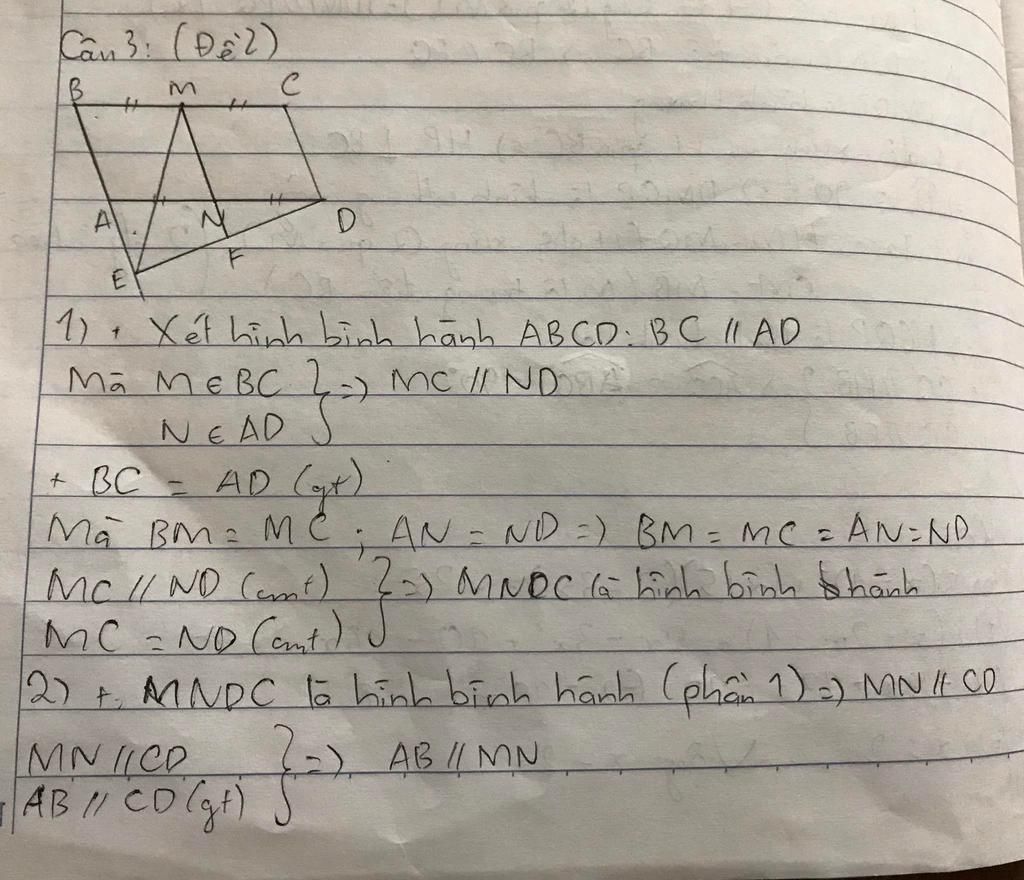 Câu 3: (Đề 2)
B M C
A N D
F
E
1) + Xét hình bình hành ABCD: BC // AD
Mà M ∈ BC } => MC // ND
N ∈ AD
+ BC = AD (gt)
Mà BM = MC ; AN = ND => BM = MC = AN = ND
MC // ND (cmt) } => MNDC là hình bình hành
MC = ND (cmt)
2) +. MNDC là hình bình hành (phần 1) => MN // CD
MN // CD } => AB // MN
AB // CD (gt)